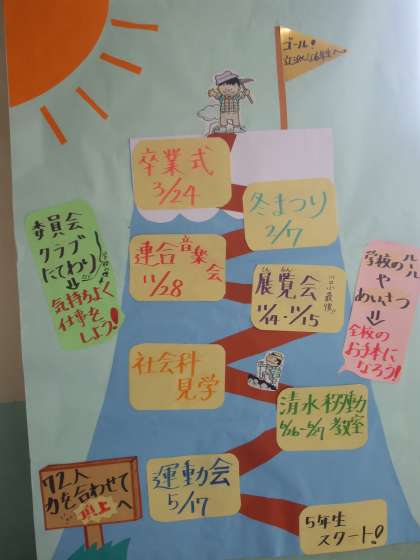 ゴール!
立派な6年生へ。
卒業式
3/24
冬まつり
2/7
委員会
クラブ
たてわり
⬇
気持ちよく
仕事を
しよう!
連合音楽会
11/28
展覧会
11/14・11/15
学校のルール
や
あいさつ
⬇
全校の
お手本に
なろう!
社会科
見学
清水移動
教室
6/26-6/27
72人
力を合わせて
頂上へ
運動会
5/17
5年生
スタート!